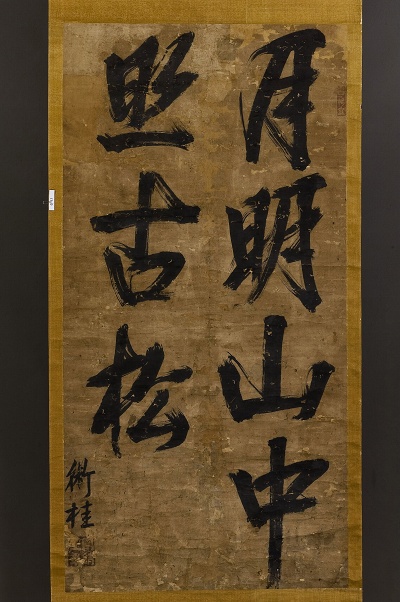 月明山中
照古松
桂